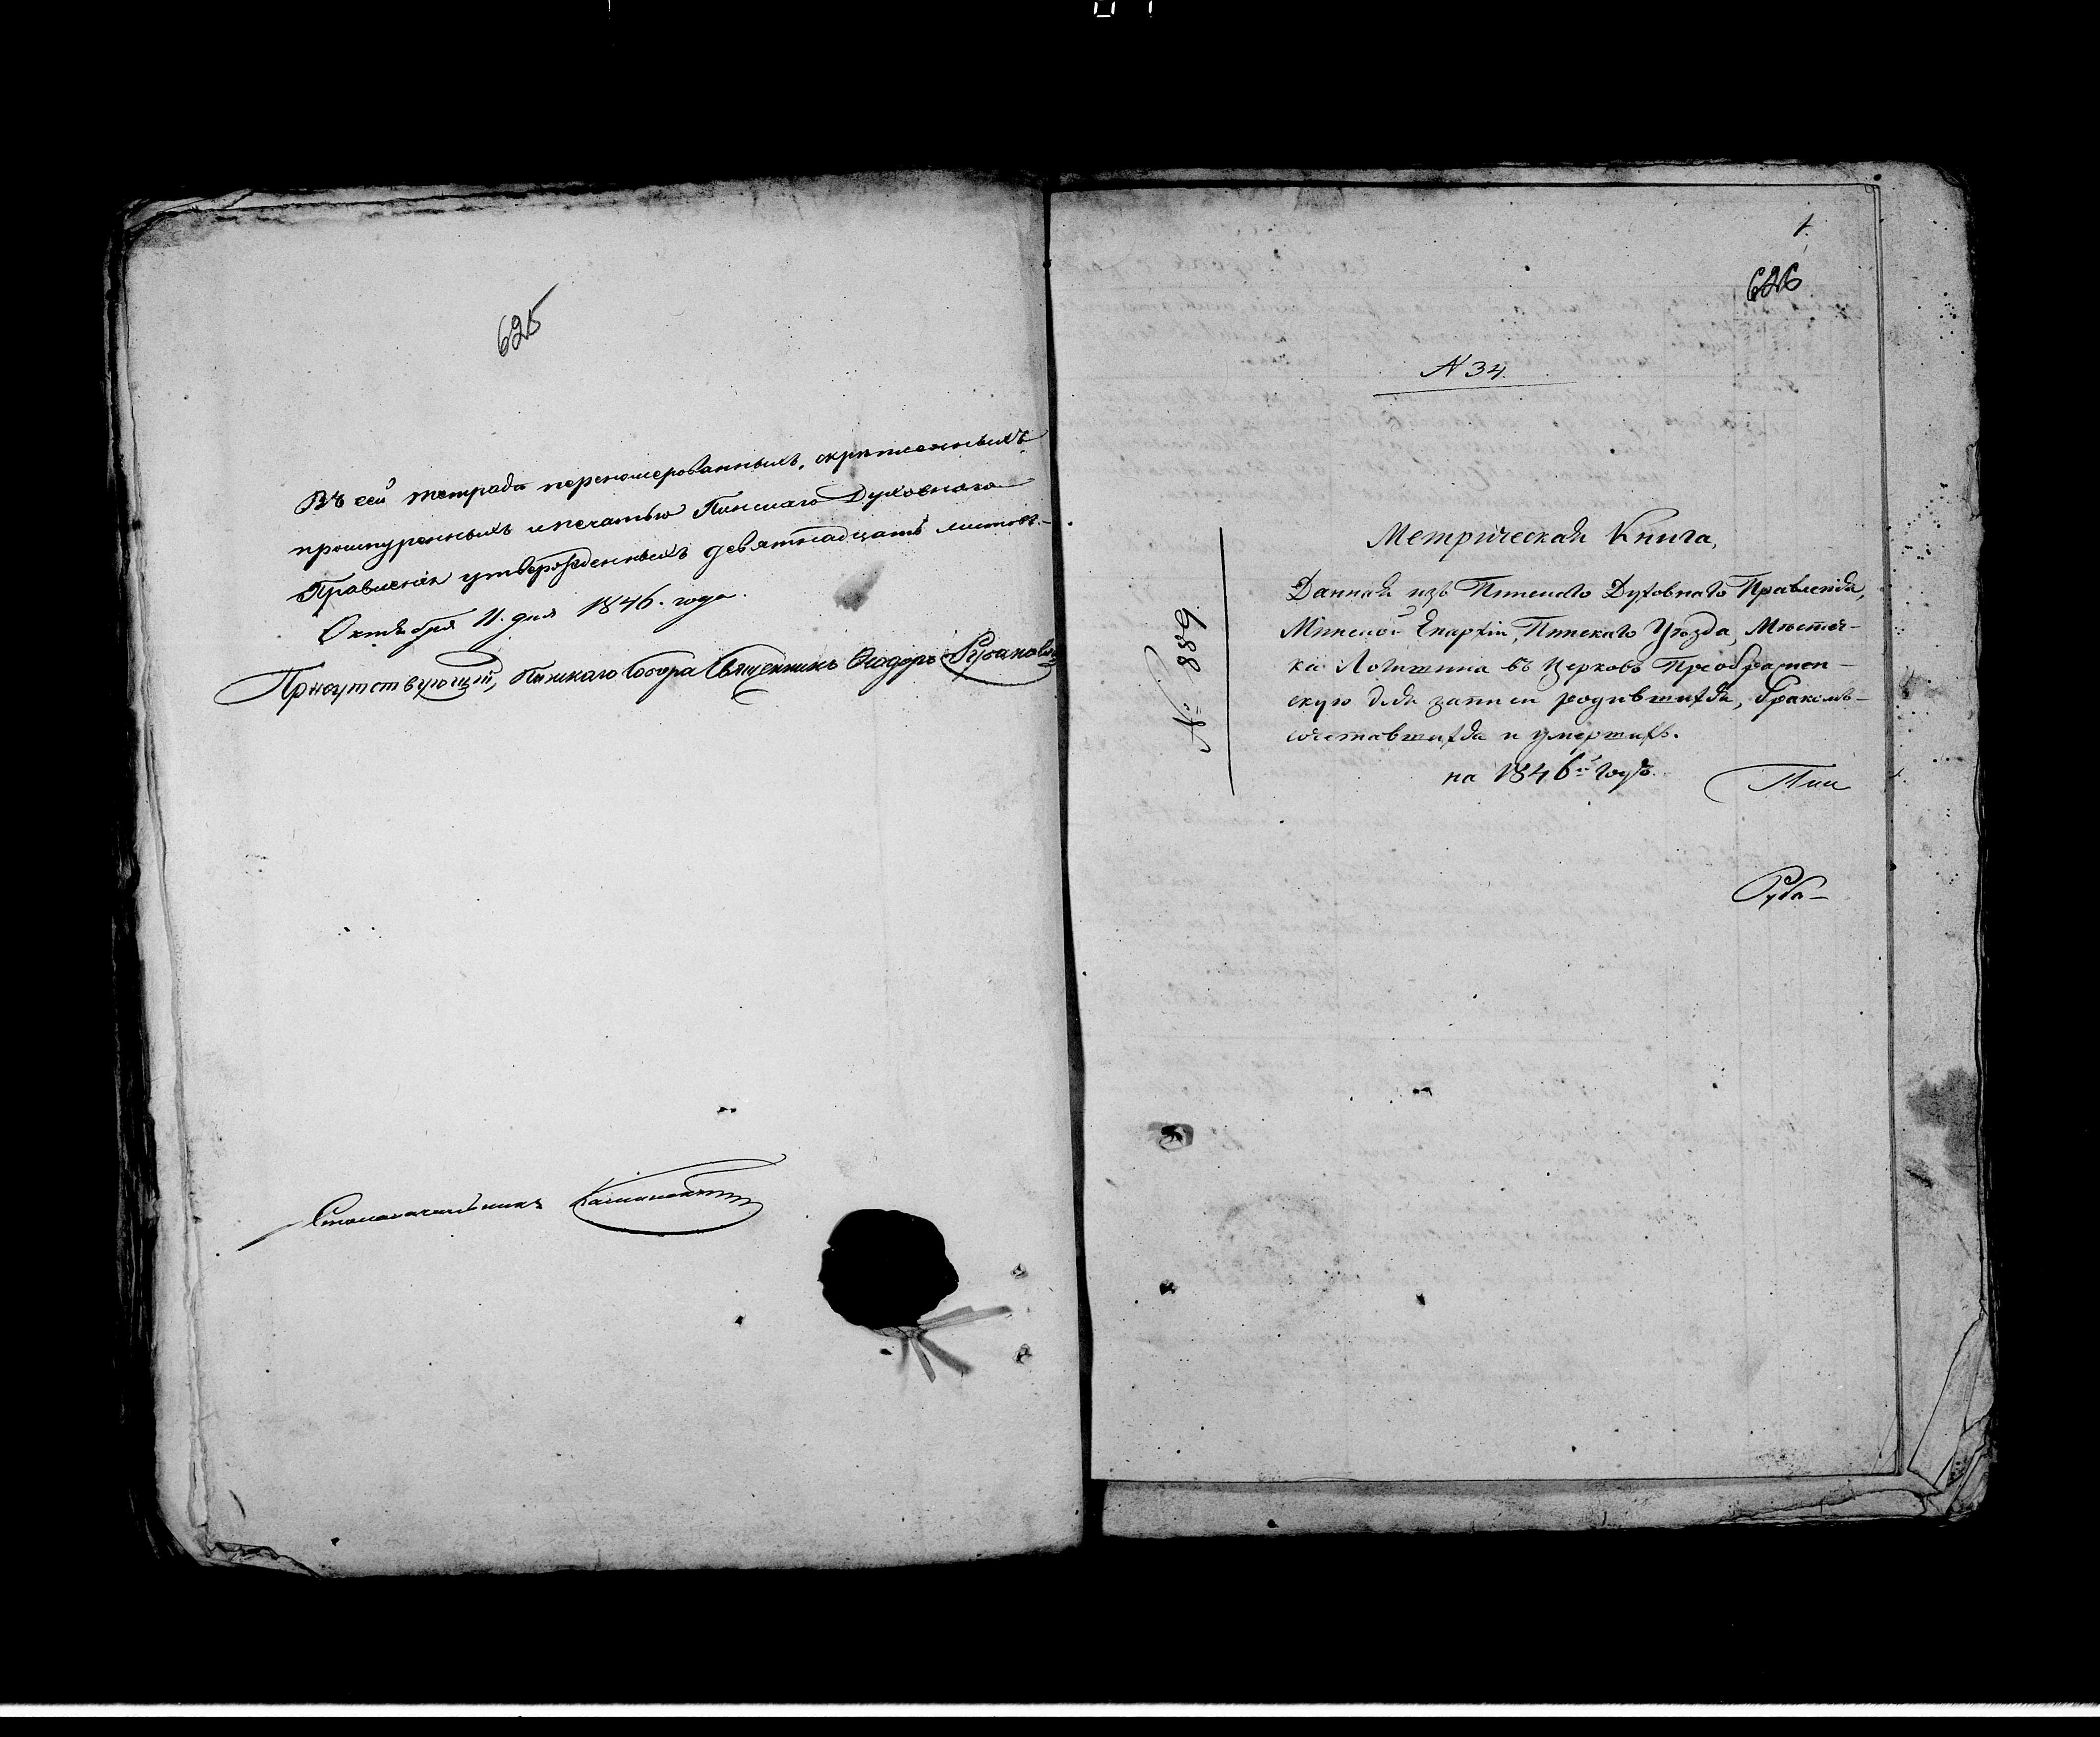 625
Въ сей тетради перенумерованныхъ, скрѣпленныхъ
прошнуренныхъ и печатью Пинскаго Духовнаго
Правленія утвержденныхъ девятнадцать листовъ.
Октября 11. дня 1846. года.
Присутствующій, Пинскаго Собора Священникъ Ѳеодоръ Рубановичъ
Столоначальникъ
1.
626
N 34.
№ 889
Метрическая Книга,
Данная изъ Пинскаго Духовнаго Правленія,
Минской Епархіи, Пинскаго Уѣзда, Мѣстеч-
ка Логишина въ Церковь Преображен-
скую для записи родившихся, бракомъ-
сочетавшихся и умершихъ.
на 1846й Годъ.
Пин
Руба-